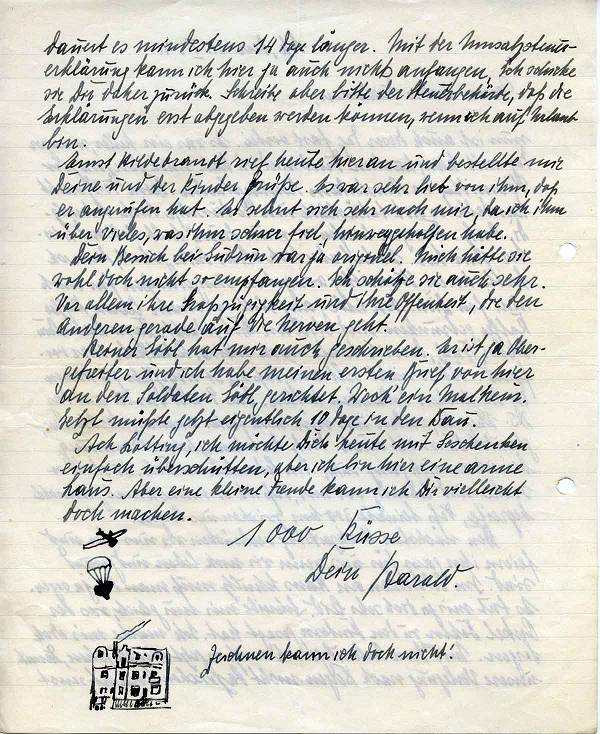 dauert es mindestens 14 Tage länger. Mit der Umsatzsteuer-
erklärung kann ich hier ja auch nichts anfangen, ich schicke
sie Dir daher zurück. Schreibe aber bitte der Steuerbehörde, daß die
Erklärungen erst abgegeben werden können, wenn ich auf Urlaub
bin.
Ernst Hildebrandt rief heute hier an und bestellte mir
Deine und der Kinder Grüße. Es war sehr lieb von ihm, daß
er angerufen hat. Er sehnt sich sehr nach mir, da ich ihm
über vieles, was ihm schwer fiel, hinweggeholfen habe.
Dein Besuch bei Gudrun war ja originell. Mich hätte sie
wohl doch nicht so empfangen. Ich schätze sie auch sehr.
Vor allem ihre Großzügigkeit und ihre Offenheit, die den
anderen gerade auf die Nerven geht.
Werner Löbl hat mir auch geschrieben. Er ist ja Ober-
gefreiter und ich habe meinen ersten Brief von hier
an den Soldaten Löbl gerichtet. Doch ein Malheur.
Jetzt müßte jetzt eigentlich 10 Tage in den Bau.
Ach Lotting, ich möchte Dich heute mit Geschenken
einfach überschütten, aber ich bin hier eine arme
Laus. Aber eine kleine Freude kann ich Dir vielleicht
doch machen.
1000 Küsse
Dein Harald.
Zeichnen kann ich doch nicht!